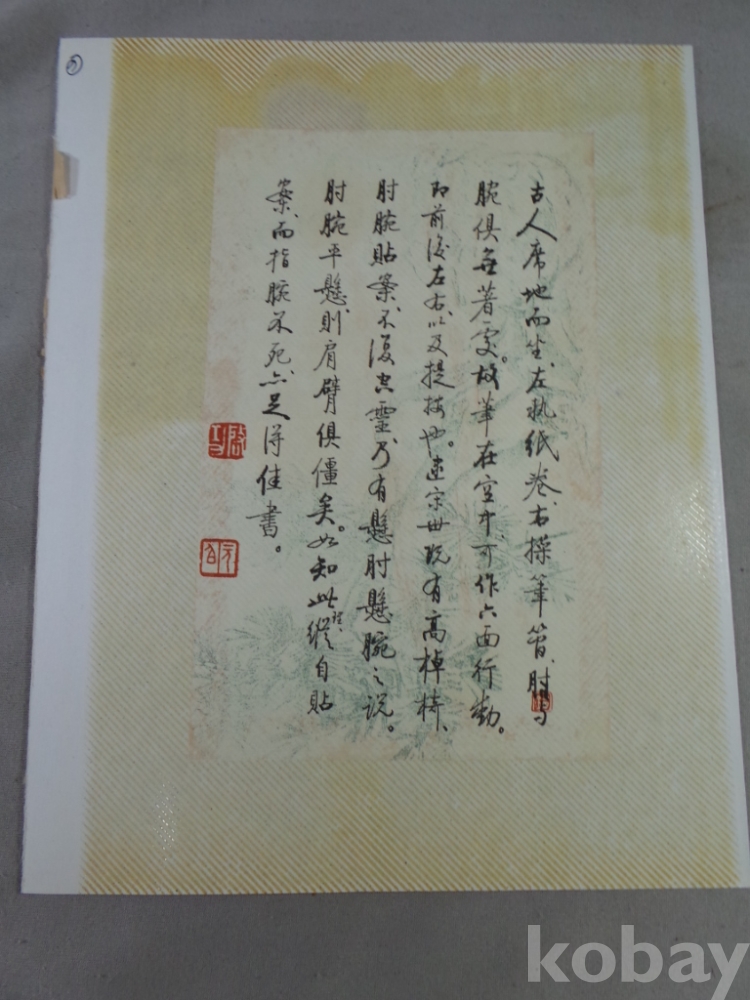 古人席地而坐、左執紙卷、右操筆管、肘與
腕俱無著處。故筆在空中、可作六面行動。
即前後左右、以及提按也。逮宋世既有高棹椅、
肘腕貼案、不復空靈、乃有懸肘懸腕之說。
肘腕平懸、則肩臂俱僵矣。如知此理、縱自貼
案、而指腕不死、亦足得佳書。
啟功
元白
kobay